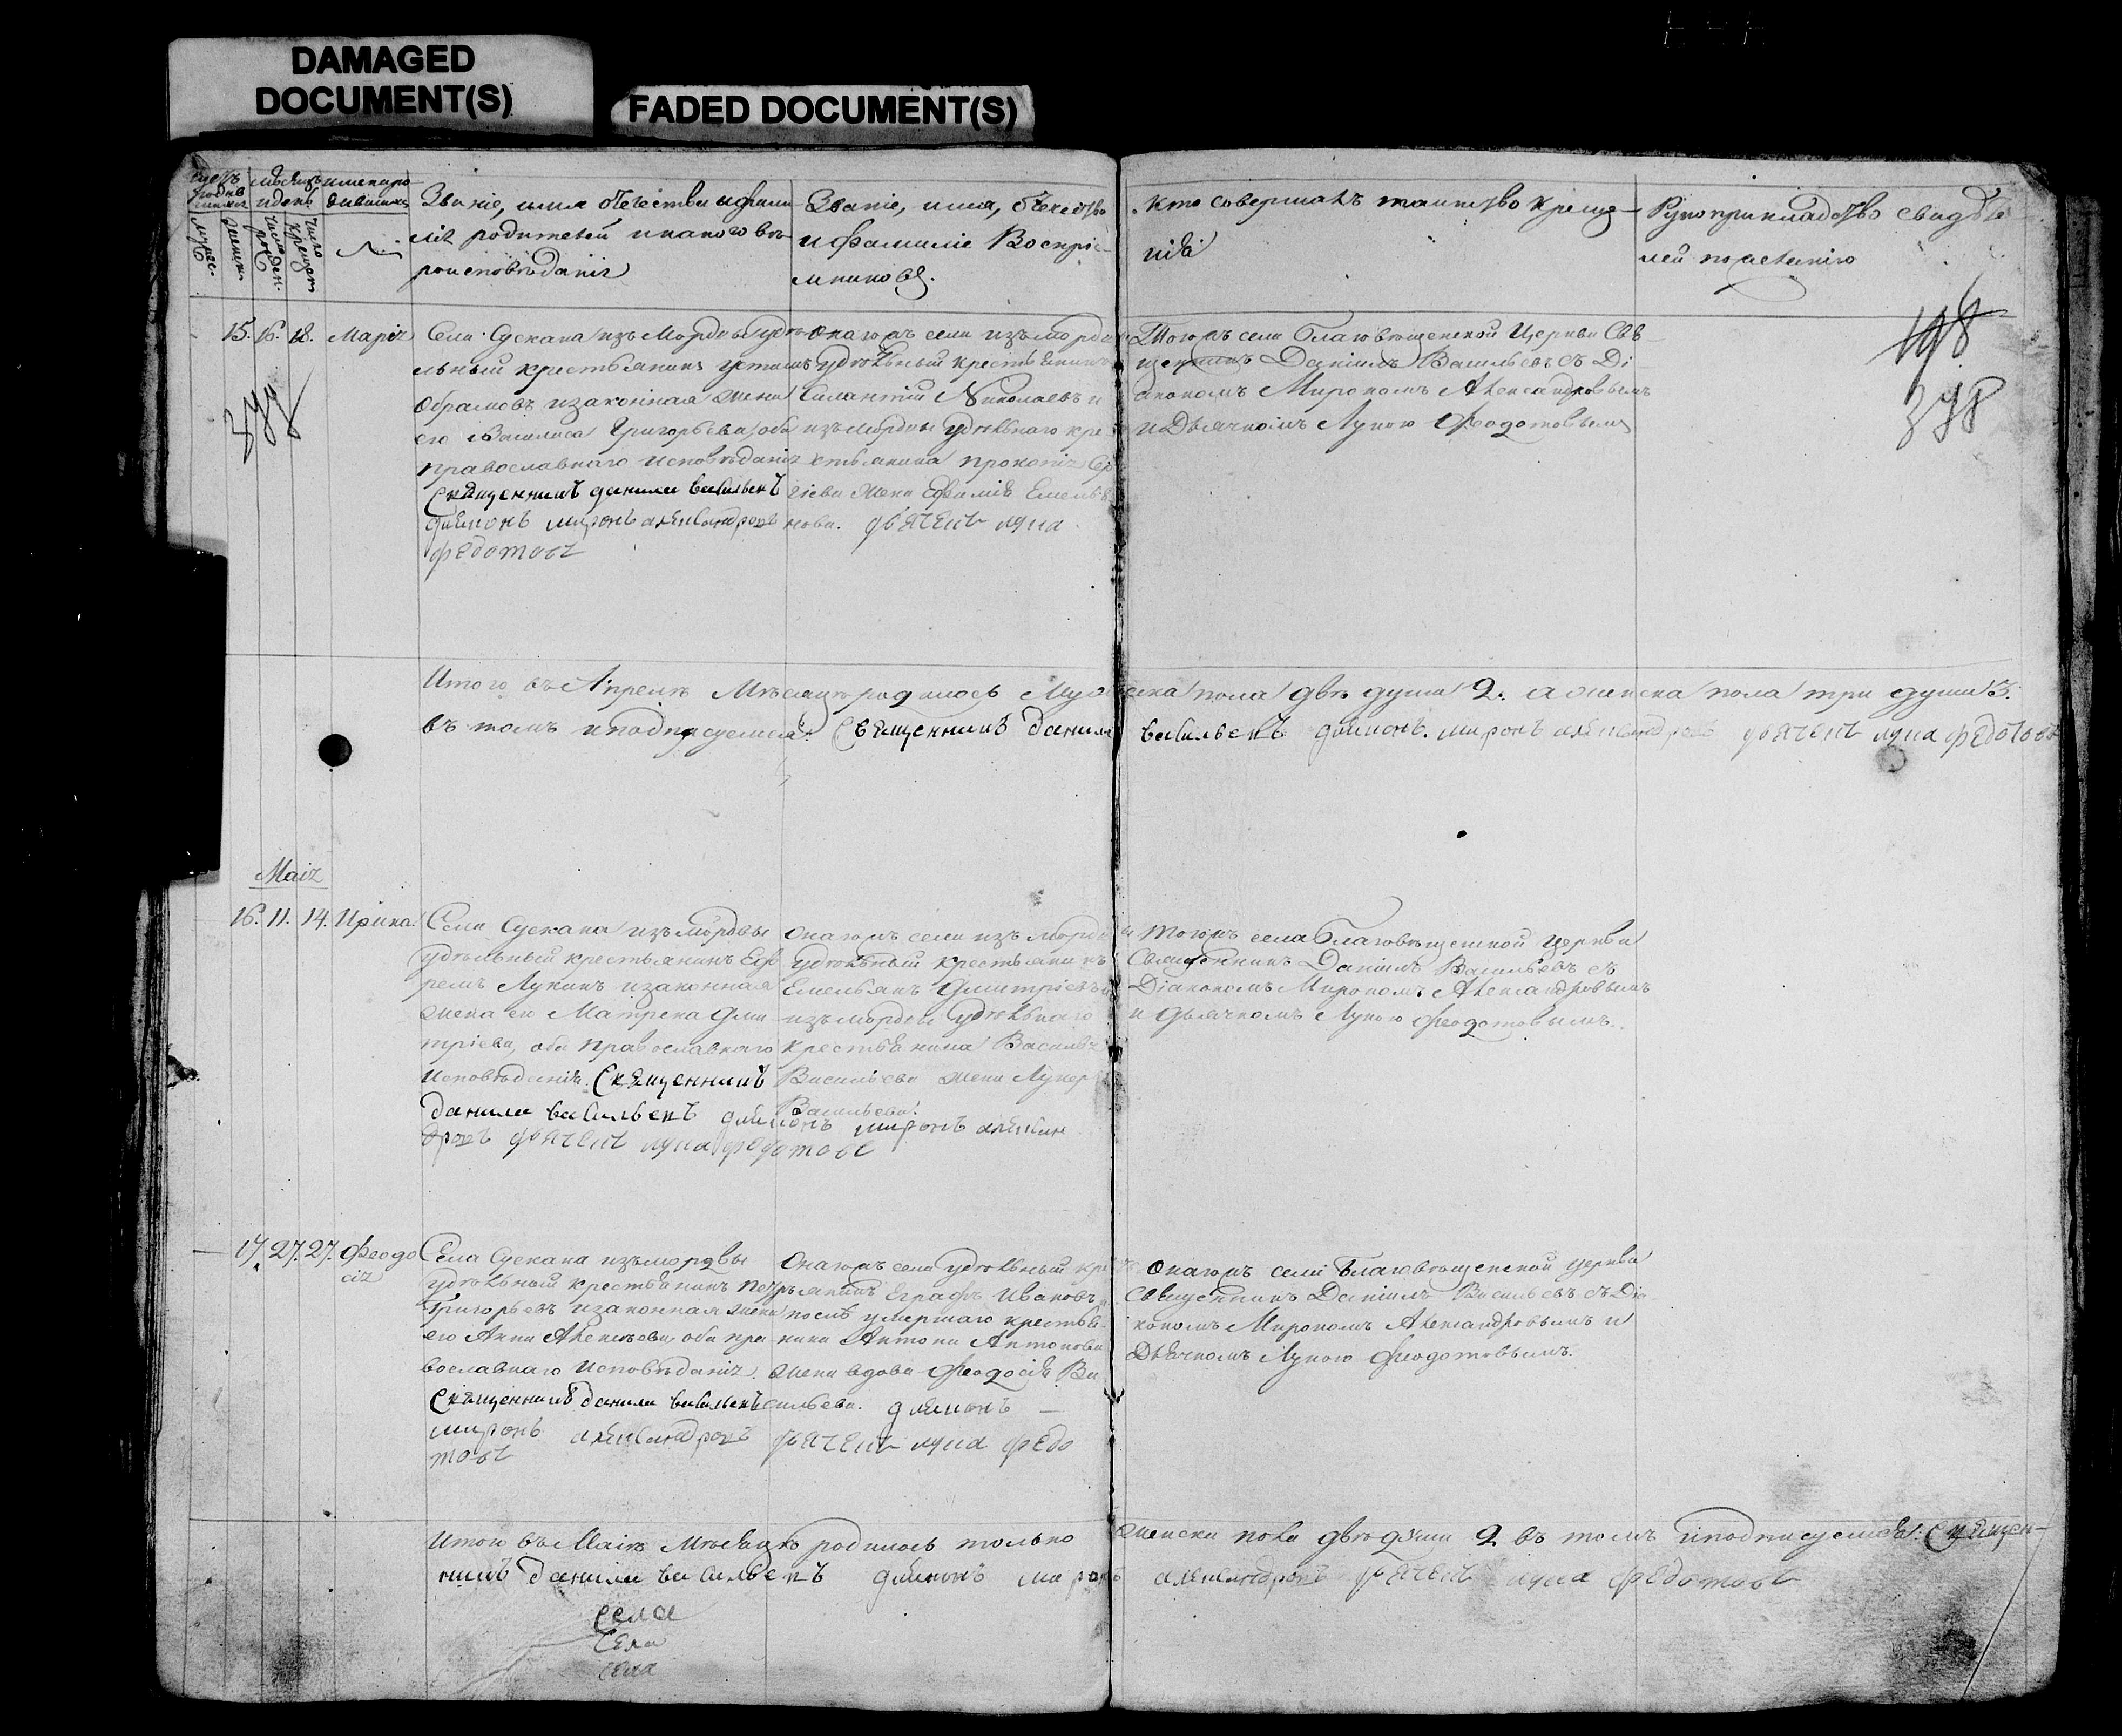 DAMAGED
DOCUMENT(S)
FADED DOCUMENT(S)
Званіе, имя отечество и фами-
лія родителей и какого вѣ-
роисповѣданія
Званіе, имя, отечество
и фамиліе Воспріе-
мниковъ.
Кто совершалъ таинство креще-
нія
Рукоприкладство свидѣте
лей по желанію
198
378
15. 16. 18. Марія
378
Села Сускана изъ Мордвы удѣ-
льный крестьянинъ Устинъ
Абрамовъ и законная жена
его Василиса Григорьева, оба
православнаго исповѣданія
Священникъ Данила Васильевъ
діаконъ миронъ александровъ
дьячекъ лука
федотовъ
Онагожъ села изъ мордвы
удѣльный крестьянинъ
Силантій Николаевъ и
изъ мордвы удѣльнаго кре
стьянина Прокопія Сер
гіева жена Евѳимія Емелья
нова.
Тогожъ села Благовѣщенской Церкви Свя
щенникъ Даніилъ Васильевъ съ Ді
акономъ Мирономъ Александровымъ
и Дьячкомъ Лукою Ѳедотовымъ
Итого въ Апрелѣ Мѣсяцѣ родилось Мужеска пола двѣ души 2. а женска пола три души 3.
въ томъ и подписуемся: Священникъ Данила Васильевъ діаконъ миронъ александровъ дьячекъ лука федотовъ
Маія
16. 11. 14. Ирина
Села Сускана изъ мордвы
удѣльный крестьянинъ Еф
ремъ Лукинъ и законная
жена его Матрена Дми
тріева, оба православнаго
исповѣданія. Священникъ
Данила Васильевъ діаконъ миронъ алексан
дровъ дьячекъ лука федотовъ
Онагожъ села изъ мордвы
удѣльный крестьянинъ
Емельянъ Дмитріевъ и
изъ мордвы удѣльнаго
крестьянина Василья
Васильева жена Лукерья
Васильева.
Тогожъ села Благовѣщенской Церкви
Священникъ Даніилъ Васильевъ съ
Діакономъ Мирономъ Александровымъ
и Дьячкомъ Лукою Ѳедотовымъ.
17. 27. 27. Ѳеодо
сія
Села Сускана изъ мордвы
удѣльный крестьянинъ Петръ
Григорьевъ и законная жена
его Анна Алексѣева оба пра
вославнаго исповѣданія.
Священникъ Данила Васильевъ діаконъ
миронъ александровъ дьячекъ лука федо
товъ
Онагожъ села удѣльный кре
стьянинъ Еграфъ Ивановъ,
послѣ умершаго крестья
нина Антона Антонова
жена вдова Ѳеодосія Ва
сильева.
Онагожъ села Благовѣщенской Церкви
Священникъ Даніилъ Васильевъ съ Діа
кономъ Мирономъ Александровымъ и
Дьячкомъ Лукою Ѳедотовымъ.
Итого въ Маіѣ Мѣсяцѣ родилось только женска пола двѣ души 2 въ томъ и подписуемся: Священ-
никъ Данила Васильевъ діаконъ миронъ александровъ дьячекъ лука федотовъ
Села
Села
села